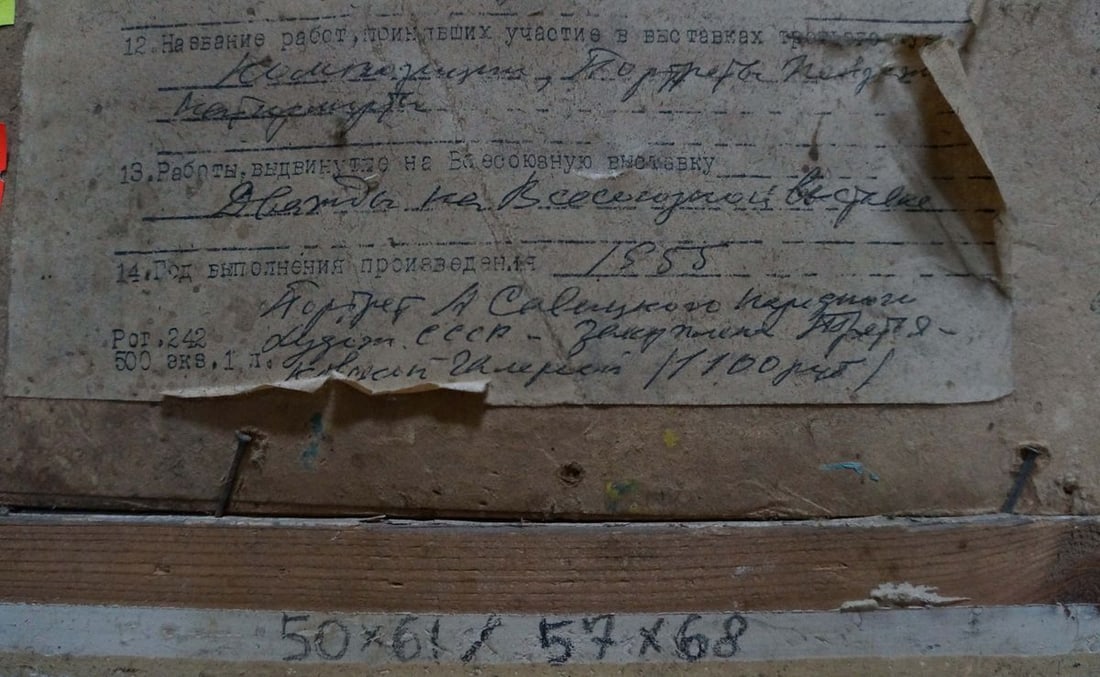 12.Название работ,принявших участие в выставках
Композиции, Портреты Пейзажи
Натюрморты
13.Работы,выдвинутые на Всесоюзную выставку
Дважды на Всесоюзной выставке
14.Год выполнения произведения 1955
Портрет А Савицкого народного
Рот.242 худож. СССР - Закуплена Третья-
500 экз.1 л. ковской Галереей (1100 руб)
50×61 / 57×68